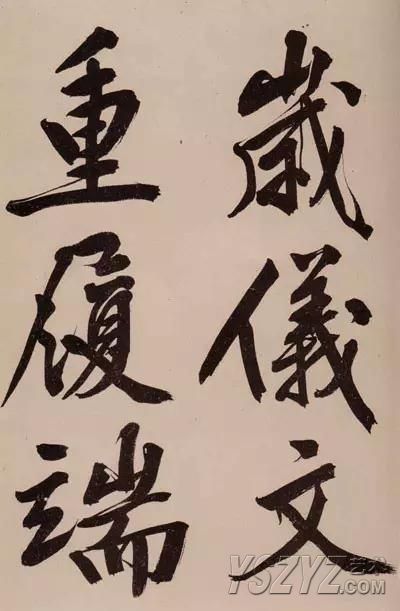 歲儀文
重履端
YSZYZ艺术